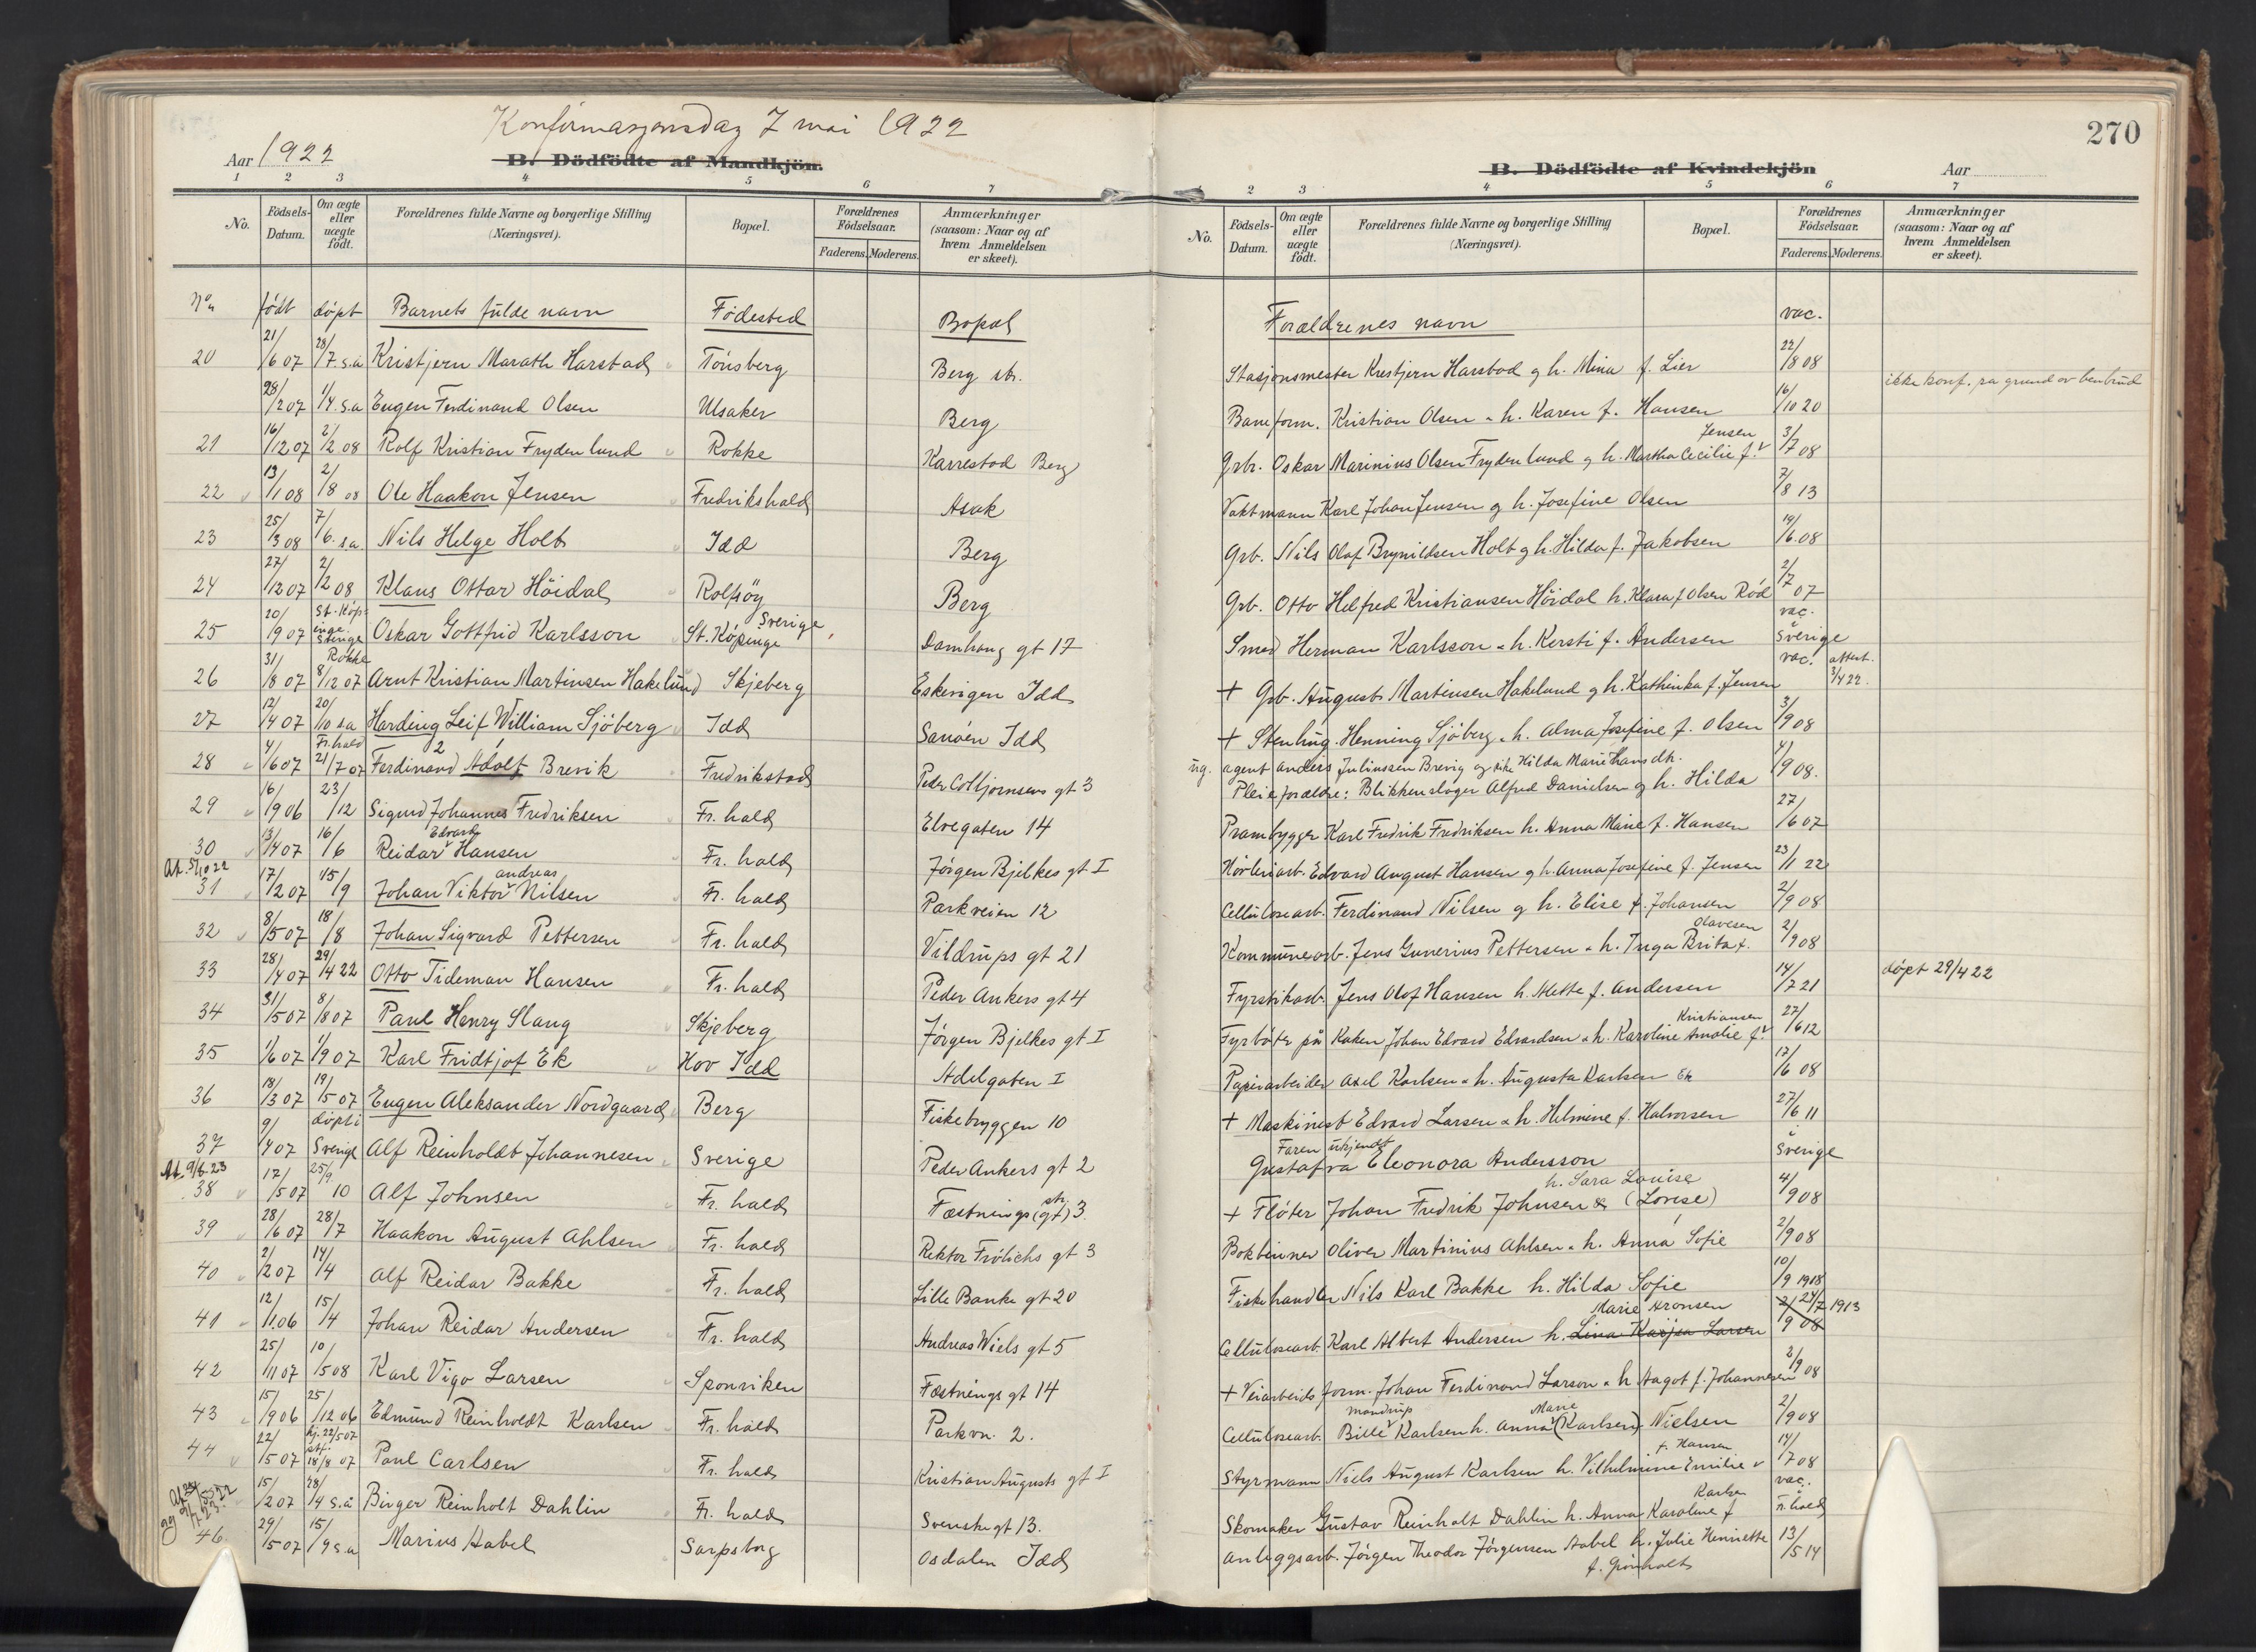 Konfirmasjonsdag 7 mai 1922
270
Aar 1922
B. Dödfödte af Mandkjön.
B. Dödfödte af Kvindekjön
Aar
1 2 3 4 5 6 7
2 3 4 5 6 7
No. Födsels-Datum. Om ægte eller uægte födt. Forældrenes fulde Navne og borgerlige Stilling (Næringsvei). Bopæl. Forældrenes Födselsaar. Faderens. Moderens. Anmærkninger (saasom: Naar og af hvem Anmeldelsen er skeet).
No. Födsels-Datum. Om ægte eller uægte födt. Forældrenes fulde Navne og borgerlige Stilling (Næringsvei). Bopæl. Forældrenes Födselsaar. Faderens. Moderens. Anmærkninger (saasom: Naar og af hvem Anmeldelsen er skeet).
født døpt Barnets fulde navn Fødested Bopæl Forældrenes navn vac.
20 21/6 07 28/7. s.a Kristjern Marath Harstad Tönsberg Berg st. Stasjonsmester Kristjern Harstad g h. Mina f. Lier 22/8 08
28/2 07 1/4. s.a Eugen Ferdinand Olsen Ulsaker Berg Baneform. Kristian Olsen h. Karen f. Hansen 16/10 20 ikke konf. pa grund av benbrud
21 16/12 07 2/2 08 Rolf Kristian Frydenlund Rokke Karrestad Berg Grbr. Oskar Marinius Olsen Frydenlund g h. Martha Cecilie f. Jensen 3/7 08
22 13/1 08 2/8 08 Ole Haakon Jensen Fredrikshald Asak Vaktmann Karl Johan Jensen g h. Josefine Olsen 7/8 13
23 25/3 08 7/6. s.a. Nils Helge Holt Idd Berg Grb. Nils Olaf Brynildsen Holt g h. Hilda f. Jakobsen 19/6. 08
24 27/12 07 2/2 08 Klaus Ottar Höidal Rolfsöy Berg Grb. Otto Helfred Kristiansen Höidal h. Klara f Olsen Röd 2/7 07
25 20/9 07 St. Köpinge Sverige Oskar Gottfrid Karlsson St. Köpinge Sverige Damhaug gt 17 Smed Herman Karlsson h. Kersti f. Andersen vac. Sverige
26 31/8 07 Rokke 8/12 07 Arnt Kristian Martinsen Hakelund Skjeberg Eskevigen Idd + Grb. August Martinsen Hakelund g h. Kathinka f. Jensen vac. attest. 3/4 22.
27 12/4 07 20/10 s.a Harding Leif William Sjöberg Idd Sanöen Idd + Stenhug. Henning Sjöberg h. Alma Josefine f. Olsen 3/9 08
28 4/6 07 Fr.hald 21/7 07 Ferdinand Adolf Brevik Fredrikstad Peder Colbjørnsens gt 3 ug. agent Anders Juliussen Brevig og Hilda Marie Hansdtr.
Pleieforældre: Blikkenslager Alfred Danielsen g h. Hilda 4/9 08.
29 16/9 06 23/12 Sigurd Johannes Fredriksen Fr. hald Elvegaten 14 Prambygger Karl Fredrik Fredriksen h. Anna Marie f. Hansen 27/6 07
30 13/4 07 16/6 Reidar Edvard Hansen Fr. hald Jørgen Bjelkes gt I Høvleriarb. Edvard August Hansen g h. Anna Josefine f. Jensen 23/11 22
At. 5/10 22
31 17/2 07 15/9 Johan Viktor Andreas Nilsen Fr. hald Parkveien 12 Cellulosearb. Ferdinand Nilsen g h. Elise f. Johansen 2/9 08
32 8/5 07 18/8 Johan Sigvard Pettersen Fr. hald Vildrups gt 21 Kommunearb. Jens Gunerius Pettersen h. Inga Brita f. Olavesen 2/9 08
33 28/4 07 29/4 22 Otto Tideman Hansen Fr. hald Peder Ankers gt 4 Fyrstikarb. Jens Olof Hansen h. Mette f. Andersen 14/7 21 døpt 29/4 22
34 31/5 07 8/8 07 Paul Henry Slang Skjeberg Jörgen Bjelkes gt I Fyrböter på Kaken Johan Edvard Edvardsen h. Karoline Amalie f. Kristiansen 27/6 12
35 1/6 07 1/9 07 Karl Fridtjof Ek Hov Idd Adelgaten I Papirarbeider Axel Karlsen h. Augusta Karlsen Ek 17/6 08
36 18/3 07 19/5 07 Eugen Aleksander Nordgaard Berg Fiskebryggen 10 + Maskinist Edvard Larsen h. Helmine f. Halvorsen 27/6 11
37 9/4 07 døpt i Sverige Alf Reinholdt Johannesen Sverige Peder Ankers gt 2 Faren ukjendt Gustafva Eleonora Andersson Sverige
At. 9/6 23
38 17/5 07 25/9 10 Alf Johnsen Fr. hald Fæstnings (gt) str. 3. + Fløter Johan Fredrik Johnsen & h. Sara Louise (Lovise) 4/9 08
39 28/6 07 28/7 Haakon August Ahlsen Fr. hald Rektor Frölichs gt 3 Bokbinner Oliver Martinius Ahlsen h. Anna Sofie 2/9 08
40 2/2 07 14/4 Alf Reidar Bakke Fr. hald Lille Banke gt 20 Fiskehandler Nils Karl Bakke h. Hilda Sofie 10/9 1918
41 12/11 06 15/4 Johan Reidar Andersen Fr. hald Andreas Wiels gt 5 Cellulosearb. Karl Albert Andersen h. Lina Kajsa Larsen Marie Aronsen 2/9 08 24/7 1913
42 25/11 07 10/5 08 Karl Vigo Larsen Sponviken Fæstnings gt 14 + Veiarbeids form. Johan Ferdinand Larson h. Aagot f. Johannesen 2/9 08
43 15/9 06 25/12 06 Edmund Reinholdt Karlsen Fr. hald Parkvn. 2. Cellulosearb. Bille Mandrup Karlsen h. Anna Marie (Karlsen) Nielsen 2/9 08
44 22/5 07 hj. 22/5 07 stf. 18/8 07 Paul Carlsen Fr. hald Kristian Augusts gt I Styrmann Niels August Karlsen h. Vilhelmine Emilie f. Hansen 14/7 08
15/2 07 28/4 s.å Birger Reinholt Dahlin Fr. hald Svenskegt 13. Skomaker Gustav Reinholt Dahlin h. Anna Karoline f Karlsen vac. Fr. hald
46. 29/5 07 15/9 s.a Marius Aabel Sarpsborg Osdalen Idd Anleggsarb. Jörgen Theodor Jörgensen Aabel h. Julie Henriette f. Grönholt 13/5 14